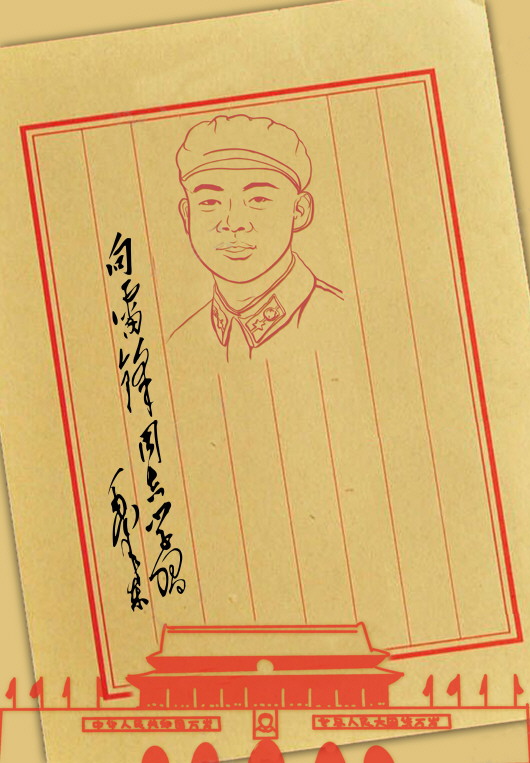 向雷锋同志学习
毛泽东
中华人民共和国万岁
世界人民大团结万岁